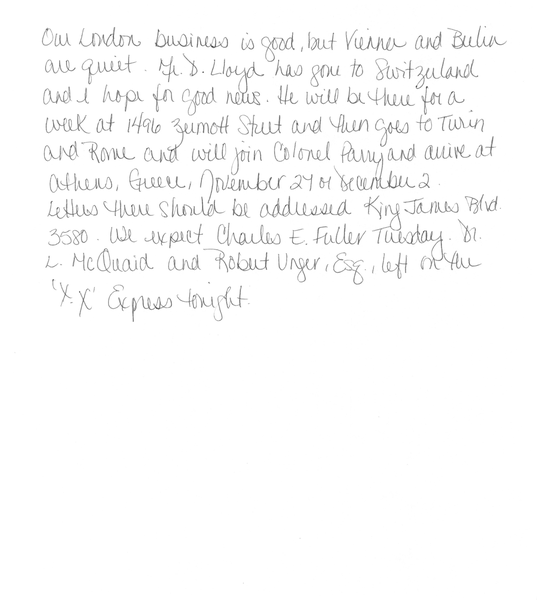 Our London business is good, but Vienna and Berlin
are quiet. Mr. D. Lloyd has gone to Switzerland
and I hope for good news. He will be there for a
week at 1496 Zermott Street and then goes to Turin
and Rome and will join Colonel Parry and arrive at
Athens, Greece, November 27 or December 2.
Letters there should be addressed King James Blvd.
3580. We expect Charles E. Fuller Tuesday. Dr.
L. McQuaid and Robert Unger, Esq., left on the
'X.X' Express tonight.